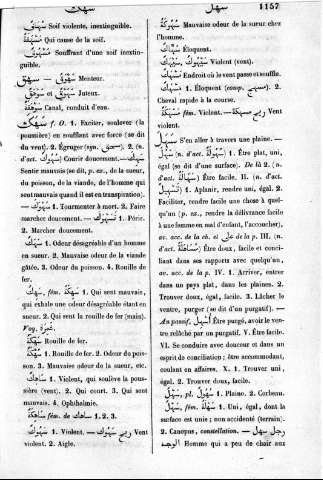 سهك
سهل
1157
Soif violente, inextinguible.
Qui cause de la soif.
Souffrant d'une soif inextin-
guible.
سهوق — سهق Menteur.
Juteux.
Canal, conduit d'eau.
سهك f. O. 1. Exciter, soulever (la
poussière) en soufflant avec force (se dit
du vent). 2. Égruger (syn. ). 2. (n.
d'act. سهوك) Courir doucement.—سهك
Sentir mauvais (se dit, p. ex., de la sueur,
du poisson, de la viande, de l'homme qui
sent mauvais quand il est en transpiration).
1. Tourmenter à mort. 2. Faire
marcher doucement. — 1. Périr.
2. Marcher doucement.
سهك 1. Odeur désagréable d'un homme
en sueur. 2. Mauvaise odeur de la viande
gâtée. 3. Odeur du poisson. 4. Rouille de
fer.
سهك, fém. ة, 1. Qui sent mauvais,
qui exhale une odeur désagréable étant en
sueur. 2. Qui sent la rouille de fer (main).
Voy.
Rouille de fer.
سهكة 1. Rouille de fer. 2. Odeur du pois-
son. 3. Mauvaise odeur de la sueur, etc.
ساهك 1. Violent, qui soulève la pous-
sière (vent). 2. Qui court. 3. Qui sent
mauvais. 4. Ophthalmie.
ساهكة fém. de ساهك 1. 2. 3.
سهوك 1. Violent. — سيهوك ريح Vent
violent. 2. Aigle.
سهوكة Mauvaise odeur de la sueur chez
l'homme.
Éloquent.
Violent (vent).
Endroit où le vent passe et souffle.
1. Éloquent (comp. ). 2.
Cheval rapide à la course.
Violent.— ريح Vent
violent.
سهل S'en aller à travers une plaine.—
سهل (n. d'act. سهولة) 1. Être plat, uni,
égal (se dit d'une surface). De là 2. (n.
d'act. سهالة) Être doux, facile. II. (n. d'act.
تسهيل) 1. Aplanir, rendre uni, égal. 2.
Faciliter, rendre facile une chose à quel-
qu'un (p. ex., rendre la délivrance facile
à une femme en mal d'enfant, l'accoucher),
av. acc. de la ch. et على de la p. III. (n.
d'act. مساهلة) Être doux, facile et conci-
liant dans ses rapports avec quelqu'un,
av. acc. de la p. IV. 1. Arriver, entrer
dans un pays plat, dans les plaines. 2.
Trouver doux, égal, facile. 3. Lâcher le
ventre, purger (se dit d'un purgatif). —
Au passif, أسهل Être purgé, avoir le ven-
tre relâché par un purgatif. V. Être facile.
VI. Se conduire avec douceur et dans un
esprit de conciliation; être accommodant,
coulant en affaires. X. 1. Trouver uni,
égal. 2. Trouver doux, facile.
سهل, pl. سهول 1. Plaine. 2. Corbeau.
سهل, fém. سهلة 1. Uni, égal, dont la
surface est unie; non accidenté (terrain).
2. Canopus, constellation. — رجل سهل
الوجه Homme qui a peu de chair aux